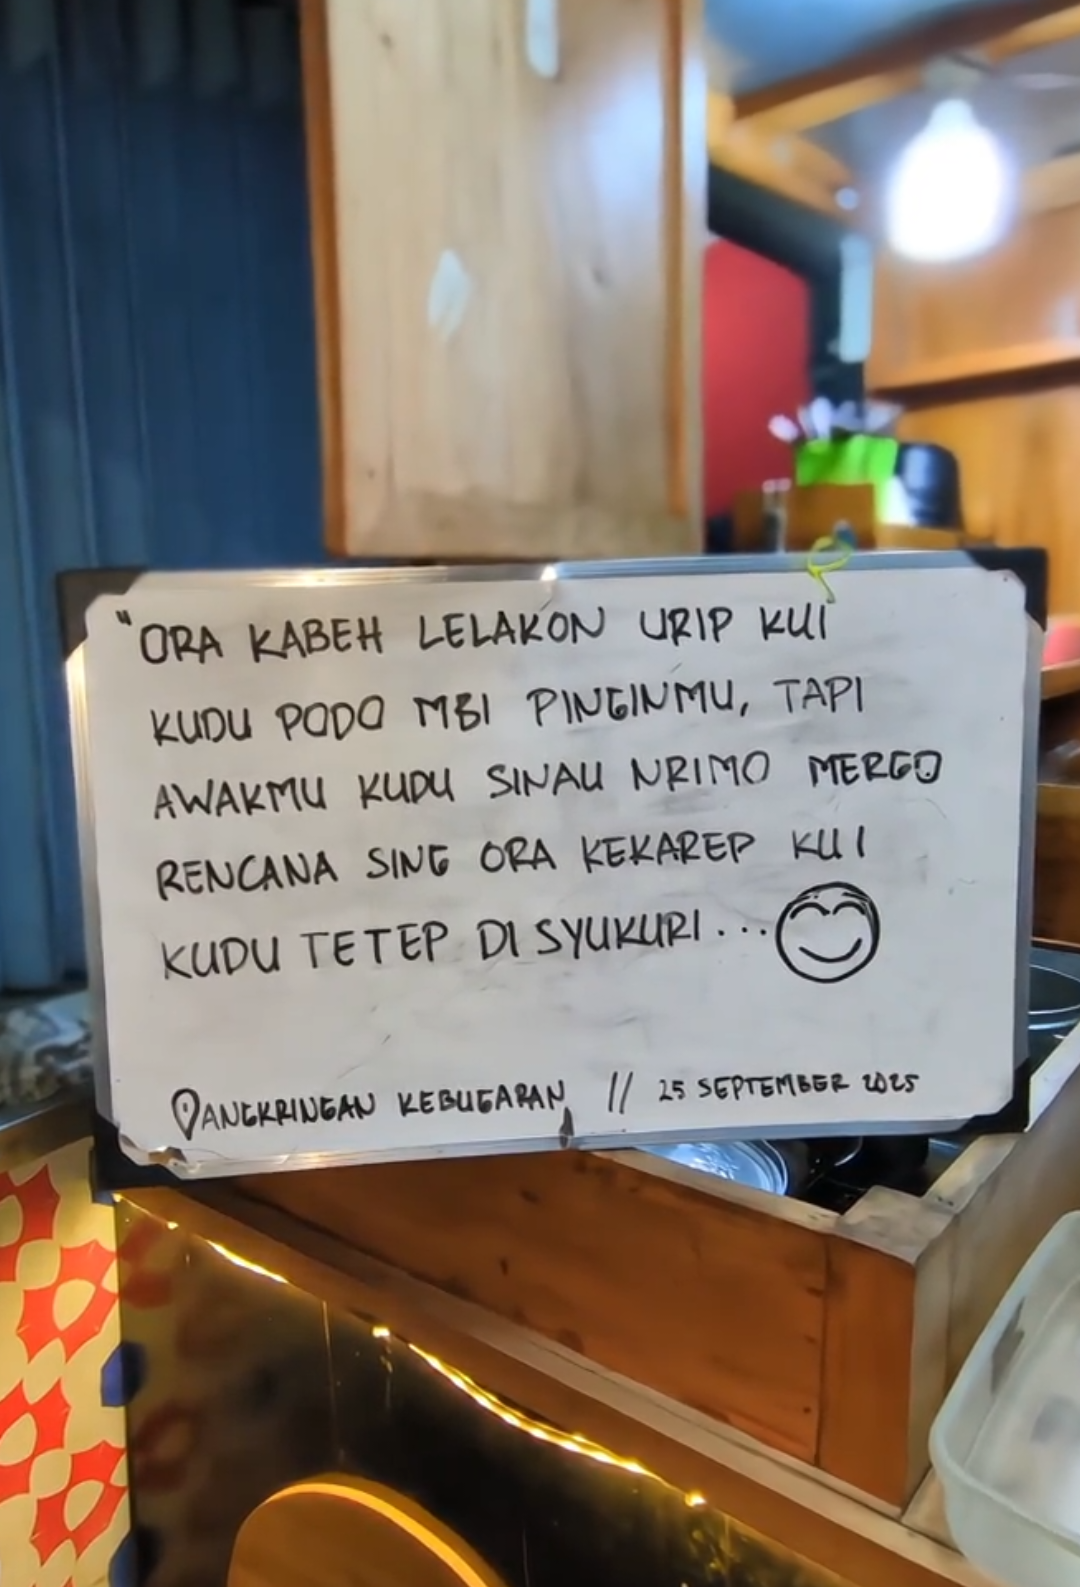 "ORA KABEH LELAKON URIP KUI
KUDU PODO MBI PINGINMU, TAPI
AWAKMU KUDU SINAU NRIMO MERGO
RENCANA SING ORA KEKAREP KUI
KUDU TETEP DI SYUKURI...
ANGKRINGAN KEBUGARAN // 25 SEPTEMBER 2025